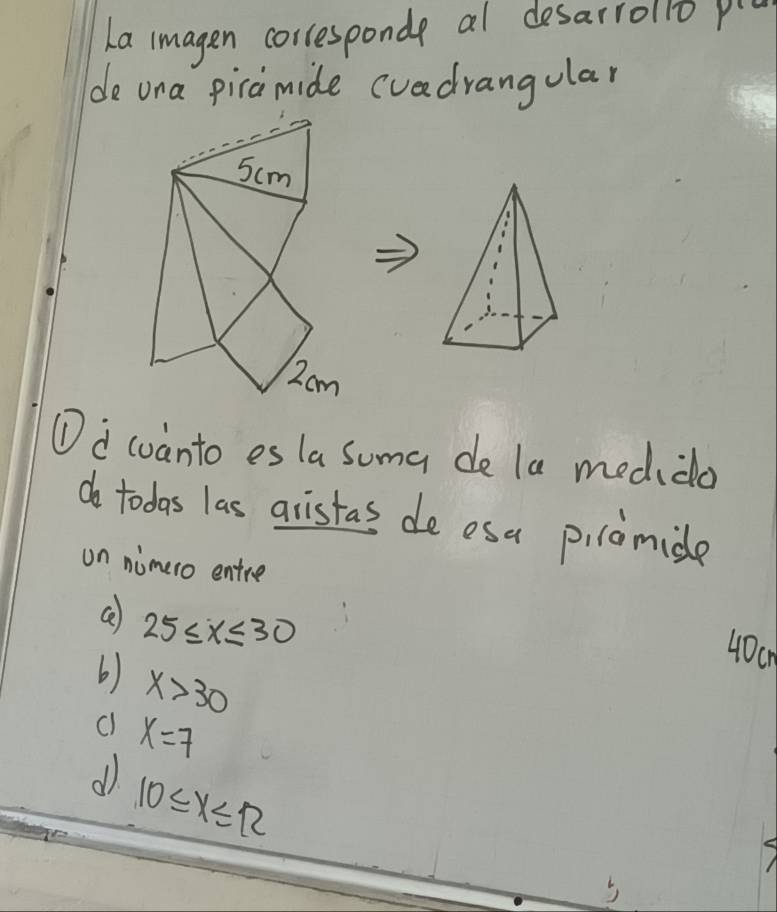 La imagen corresponde al desarrollo
de una pirámide cuadrangular
5cm
⇒
2cm
① ¿ cuánto es la suma de la medida
de todas las aristas de esa pirámide
un número entre
a) 25 ≤ x ≤ 30
40cm
b) x > 30
c) x = 7
d) 10 ≤ x ≤ 12